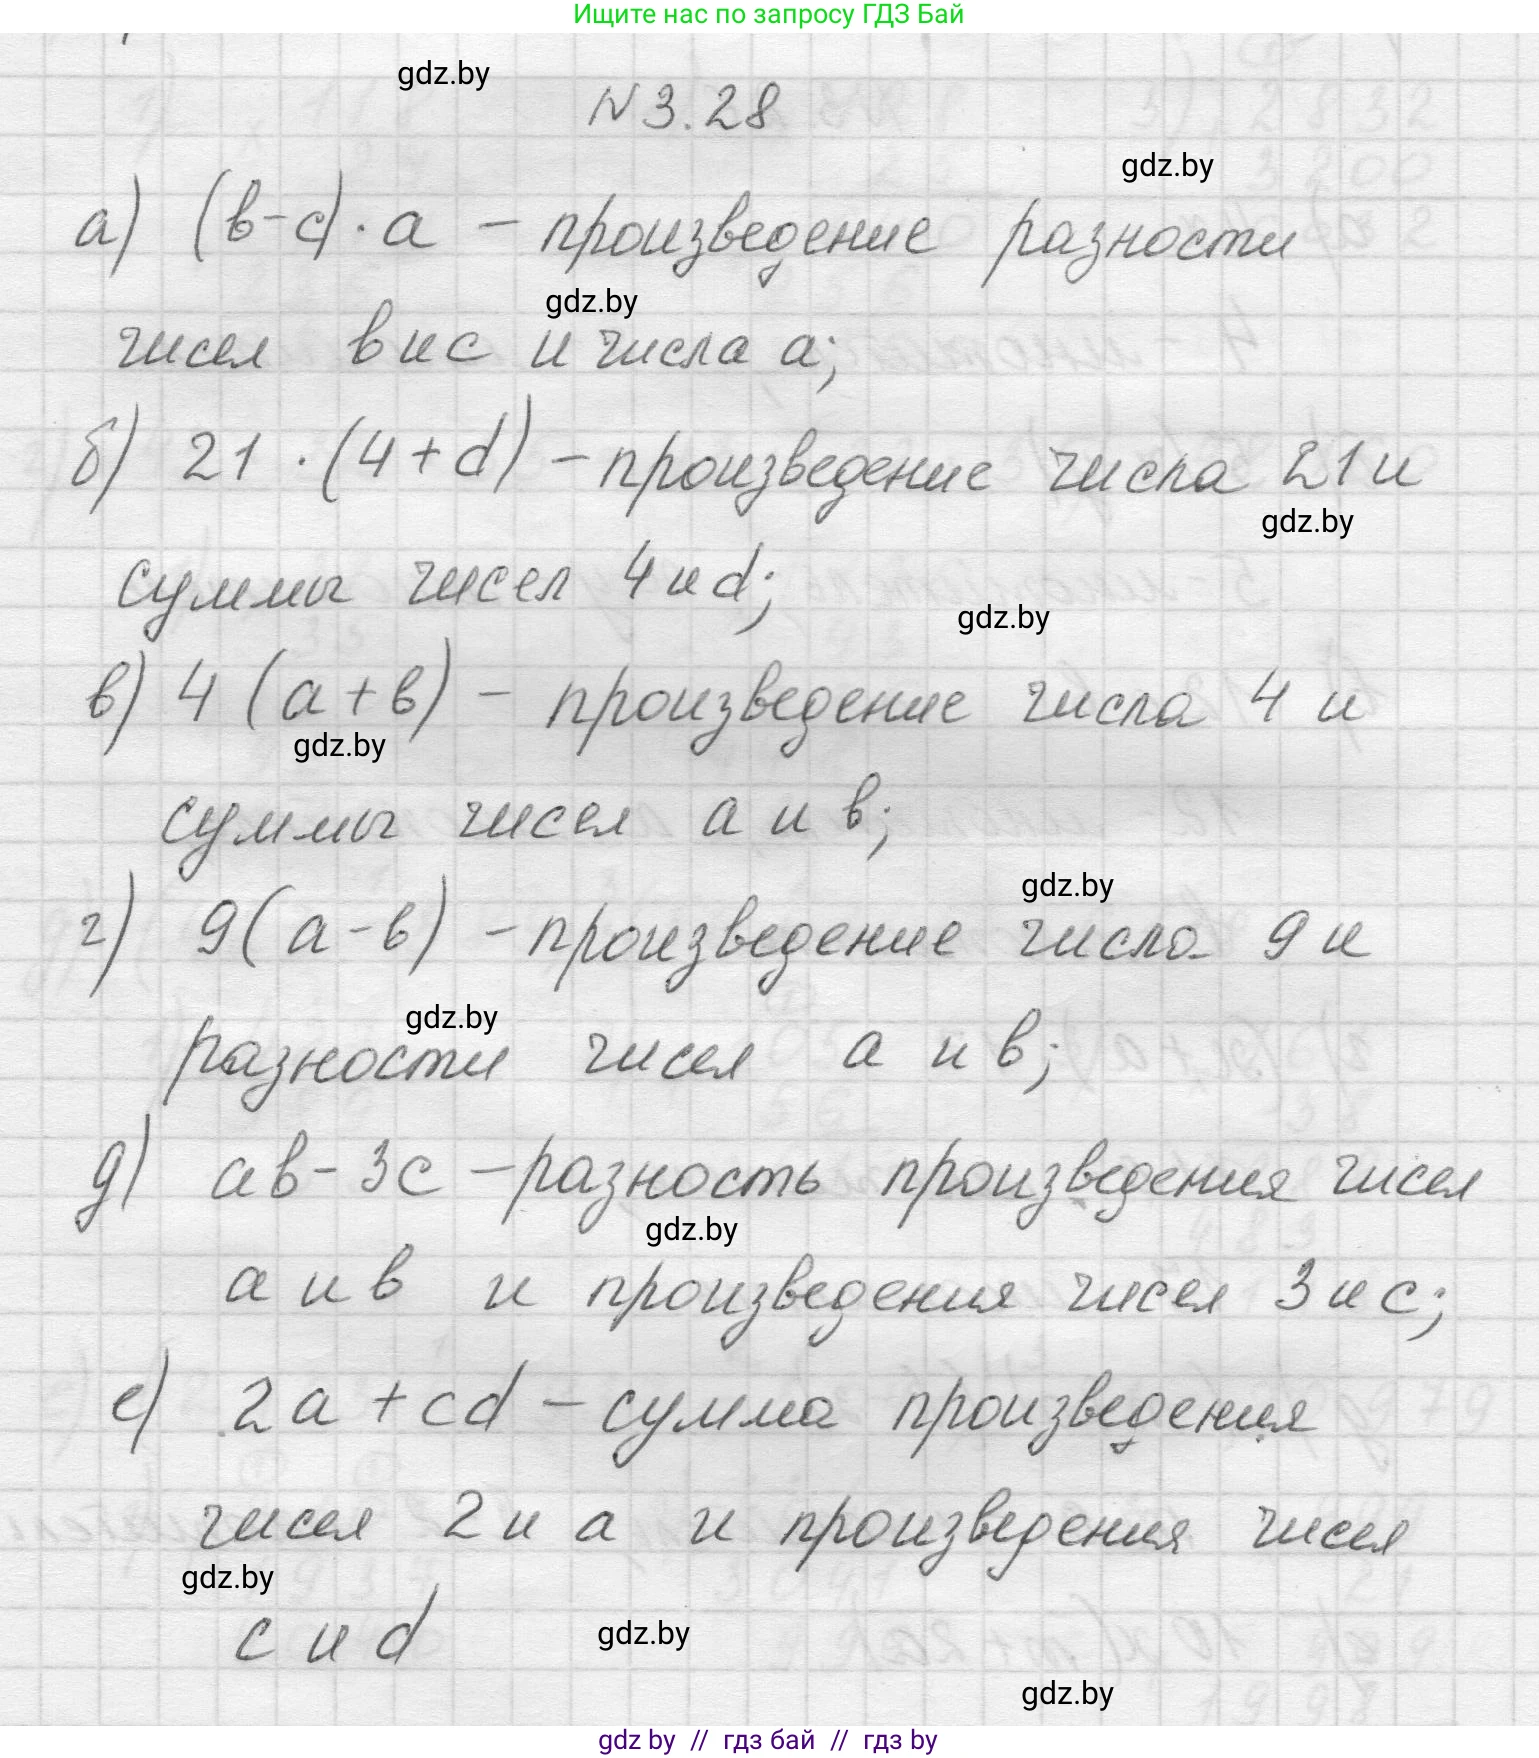 Ищите нас по запросу ГДЗ Бай
gdz.by
N 3.28
gdz.by
а) (в-с)·а – произведение разности
gdz.by
чисел в и с и числа а;
б) 21 ·(4+d) – произведение числа 21 и
gdz.by
суммы чисел 4 и d;
gdz.by
в) 4 (а+в) – произведение числа 4 и
gdz.by
суммы чисел а и в;
gdz.by
г) 9(а-в) – произведение числа 9 и
gdz.by
разности чисел а и в;
д) ав-3с – разность произведения чисел
gdz.by
а и в и произведения чисел 3 и с;
е) 2а+cd – сумма произведения
чисел 2 и а и произведения чисел
gdz.by
с и d
gdz.by
gdz.by
gdz by // гдз бай // гдз by